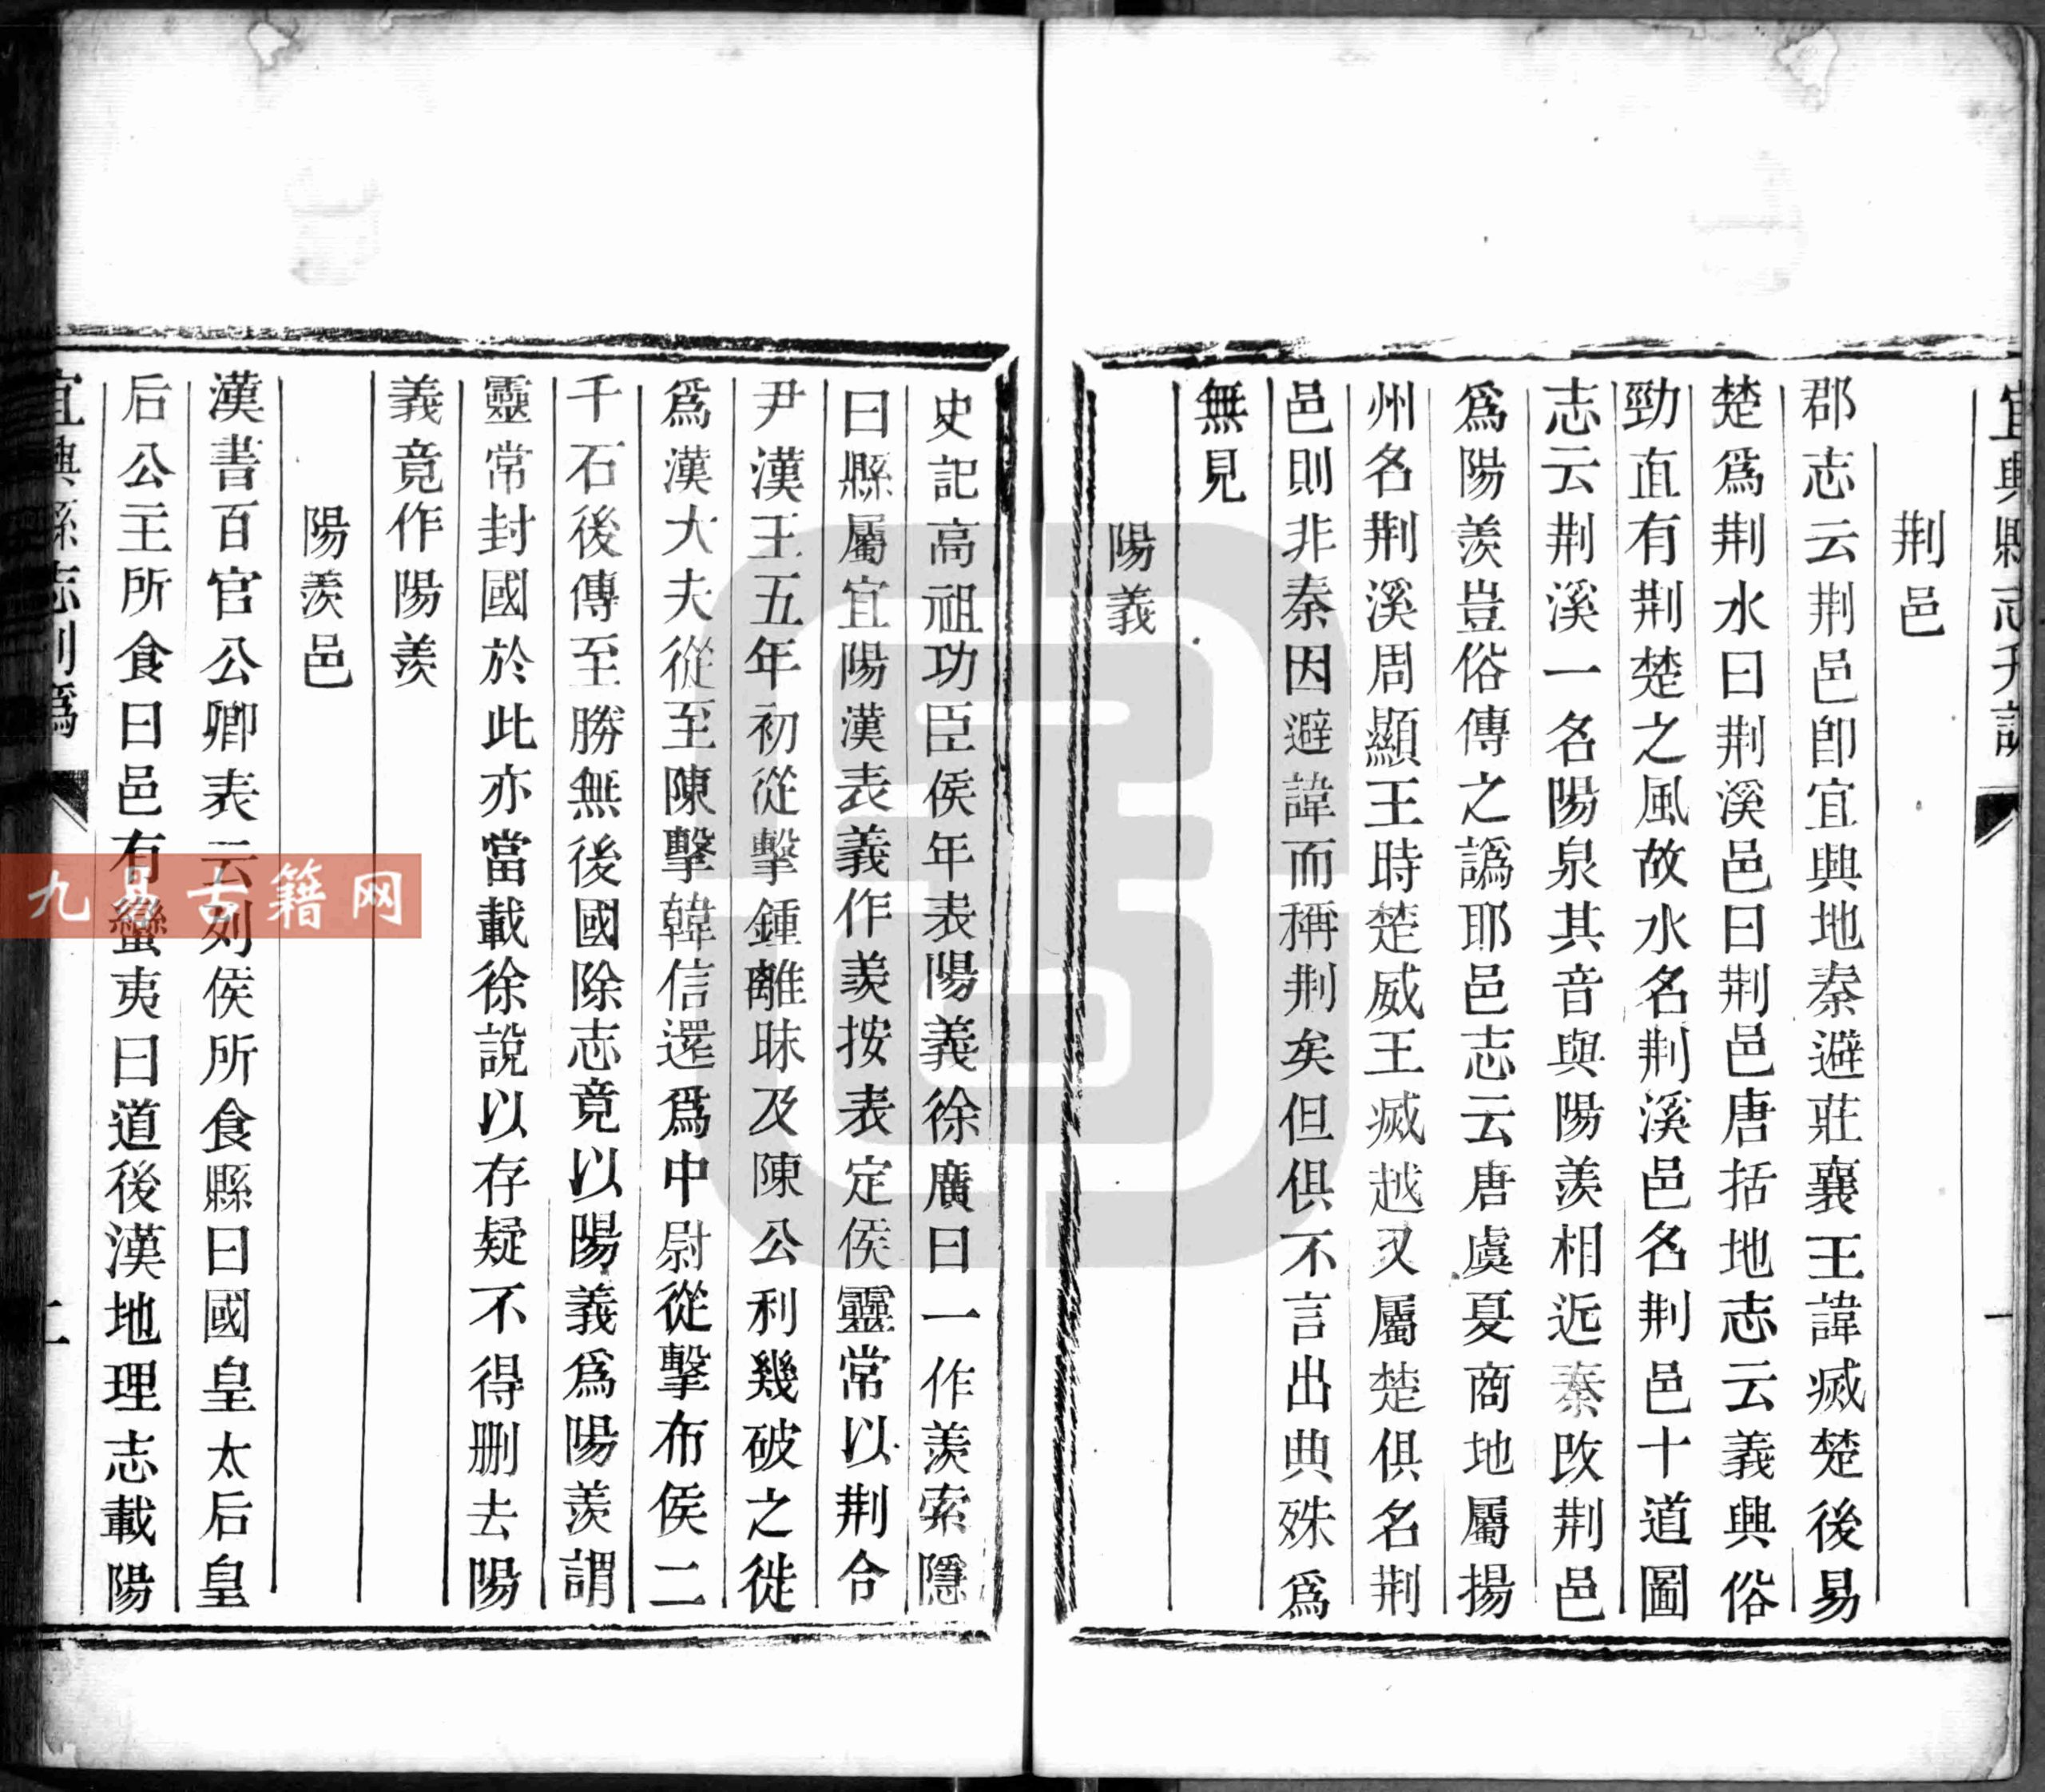 荆邑
郡志云荆邑卽宜興地秦避莊襄王諱滅楚後易
楚爲荆水曰荆溪邑曰荆邑唐括地志云義興俗
勁直有荆楚之風故水名荆溪邑名荆邑十道圖
志云荆溪一名陽泉其音與陽羨相近秦改荆邑
爲陽羨豈俗傳之譌耶邑志云唐虞夏商地屬揚
州名荆溪周顯王時楚威王滅越又屬楚俱名荆
邑則非秦因避諱而稱荆矣但俱不言出典殊爲
無見
陽義
史記高祖功臣侯年表陽義徐廣曰一作羨索隱
曰縣屬宜陽漢表義作羨按表定侯靈常以荆令
尹漢王五年初從擊鍾離眛及陳公利幾破之徙
爲漢大夫從至陳擊韓信還爲中尉從擊布侯二
千石後傳至勝無後國除志竟以陽義爲陽羨謂
靈常封國於此亦當載徐說以存疑不得删去陽
義竟作陽羨
陽羨邑
漢書百官公卿表云列侯所食縣曰國皇太后皇
后公主所食曰邑有蠻夷曰道後漢地理志載陽
二
九易古籍网